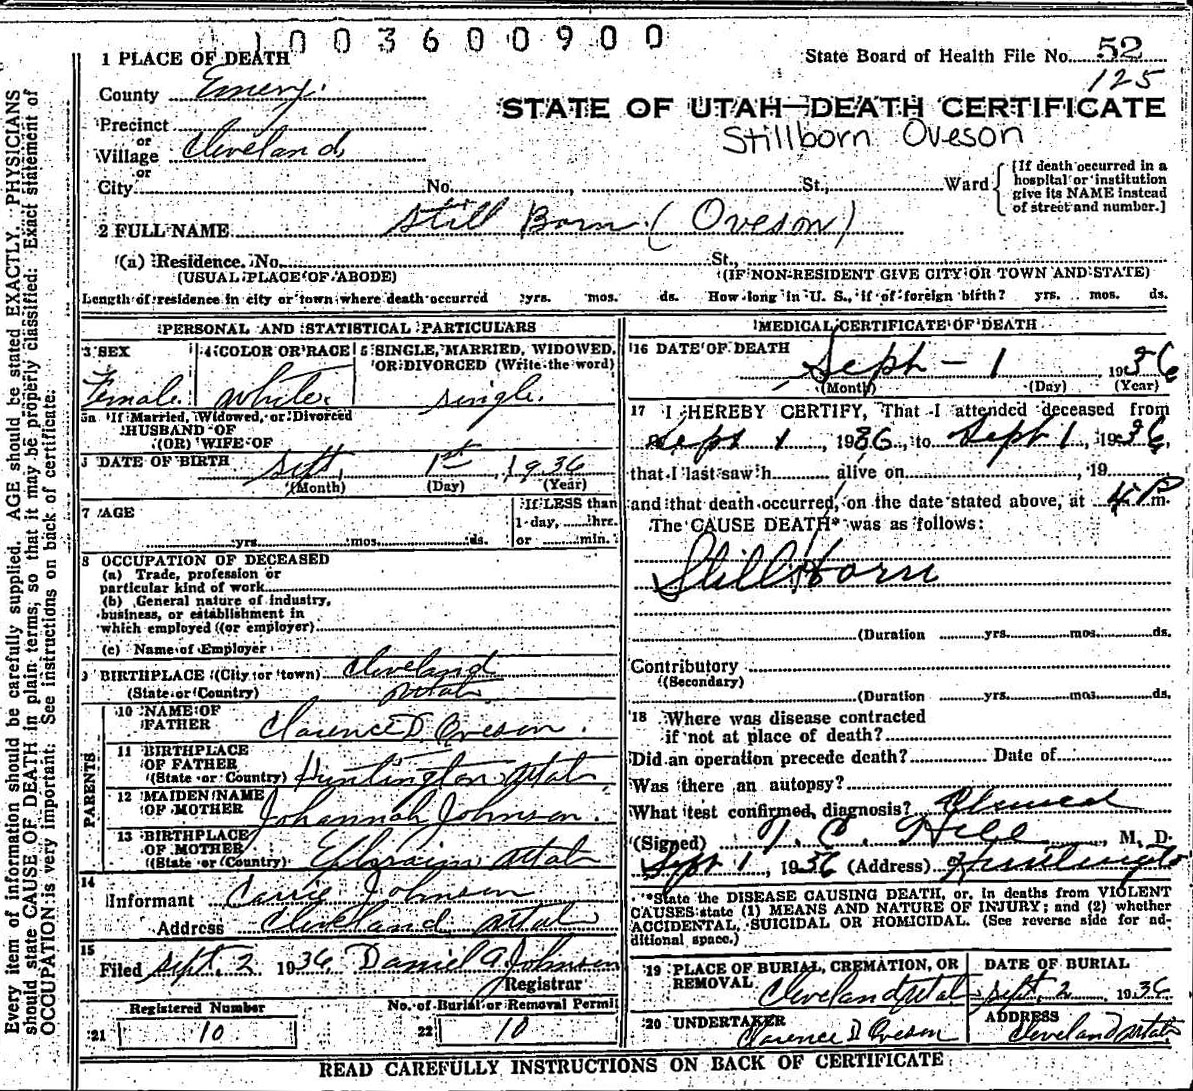 1 0 0 3 6 0 0 9 0 0
State Board of Health File No. 52
125
1 PLACE OF DEATH
County Emery.
STATE OF UTAH—DEATH CERTIFICATE
Stillborn Oveson
Precinct
or
Village Cleveland,
or
City No. , St., Ward
[If death occurred in a hospital or institution give its NAME instead of street and number.]
2 FULL NAME Still Born (Oveson)
(a) Residence. No. St.,
(USUAL PLACE OF ABODE) (IF NON-RESIDENT GIVE CITY OR TOWN AND STATE)
Length of residence in city or town where death occurred yrs. mos. ds. How long in U. S., if of foreign birth? yrs. mos. ds.
PERSONAL AND STATISTICAL PARTICULARS
3 SEX
Female.
4 COLOR OR RACE
White.
5 SINGLE, MARRIED, WIDOWED,
OR DIVORCED (Write the word)
single.
5a If Married, Widowed, or Divorced
HUSBAND OF
(OR) WIFE OF
DATE OF BIRTH Sept, 1st, 1936
(Month) (Day) (Year)
7 AGE
yrs. mos. ds.
If LESS than
1 day, hrs.
or min.
8 OCCUPATION OF DECEASED
(a) Trade, profession or
particular kind of work
(b) General nature of industry,
business, or establishment in
which employed (or employer)
(c) Name of Employer
9 BIRTHPLACE (City or town) Cleveland
(State or Country) Utah
PARENTS
10 NAME OF
FATHER Clarence D Oveson.
11 BIRTHPLACE
OF FATHER
(State or Country) Huntington Utah
12 MAIDEN NAME
OF MOTHER Johannah Johnson.
13 BIRTHPLACE
OF MOTHER
(State or Country) Ephraim Utah
14
Informant Carrie Johnson
Address Cleveland Utah
15
Filed Sept. 2 1936, Daniel A Johnson
Registrar
Registered Number
21 10
No. of Burial or Removal Permit
22 10
MEDICAL CERTIFICATE OF DEATH
16 DATE OF DEATH Sept - 1 1936
(Month) (Day) (Year)
17 I HEREBY CERTIFY, That I attended deceased from
Sept 1, 1936, to Sept 1, 1936,
that I last saw h alive on , 19
and that death occurred, on the date stated above, at 4 P m.
The CAUSE DEATH* was as follows:
Still born
(Duration yrs. mos. ds.
Contributory
(Secondary)
(Duration yrs. mos. ds.
18 Where was disease contracted
if not at place of death?
Did an operation precede death? Date of
Was there an autopsy?
What test confirmed diagnosis?
(Signed) T. C. Hill, M. D.
Sept 1, 1936 (Address) Huntington
*State the DISEASE CAUSING DEATH, or, In deaths from VIOLENT
CAUSES state (1) MEANS AND NATURE OF INJURY; and (2) whether
ACCIDENTAL, SUICIDAL OR HOMICIDAL. (See reverse side for ad-
ditional space.)
19 PLACE OF BURIAL, CREMATION, OR
REMOVAL
Cleveland Utah
DATE OF BURIAL
Sept. 2, 1936
20 UNDERTAKER
Clarence D Oveson
ADDRESS
Cleveland Utah
READ CAREFULLY INSTRUCTIONS ON BACK OF CERTIFICATE
Every item of information should be carefully supplied. AGE should be stated EXACTLY. PHYSICIANS
should state CAUSE OF DEATH in plain terms, so that it may be properly classified. Exact statement of
OCCUPATION is very important. See instructions on back of certificate.